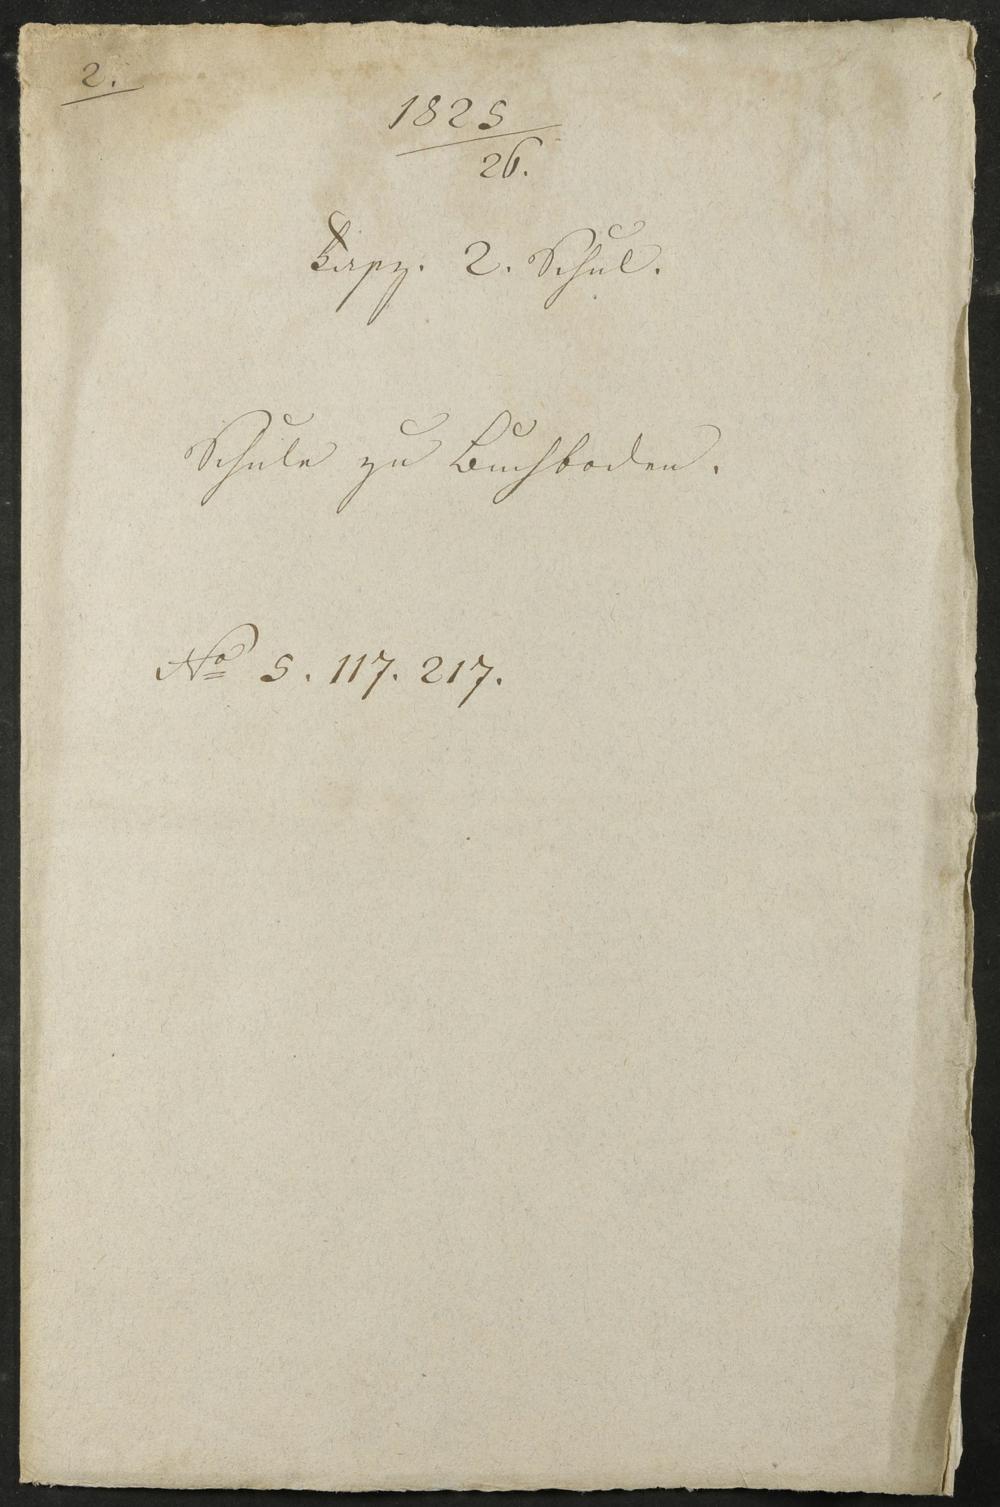 2.
1825
26.
Fasz. 2. Schul.
Schule zu Buchboden.
No 5. 117. 217.